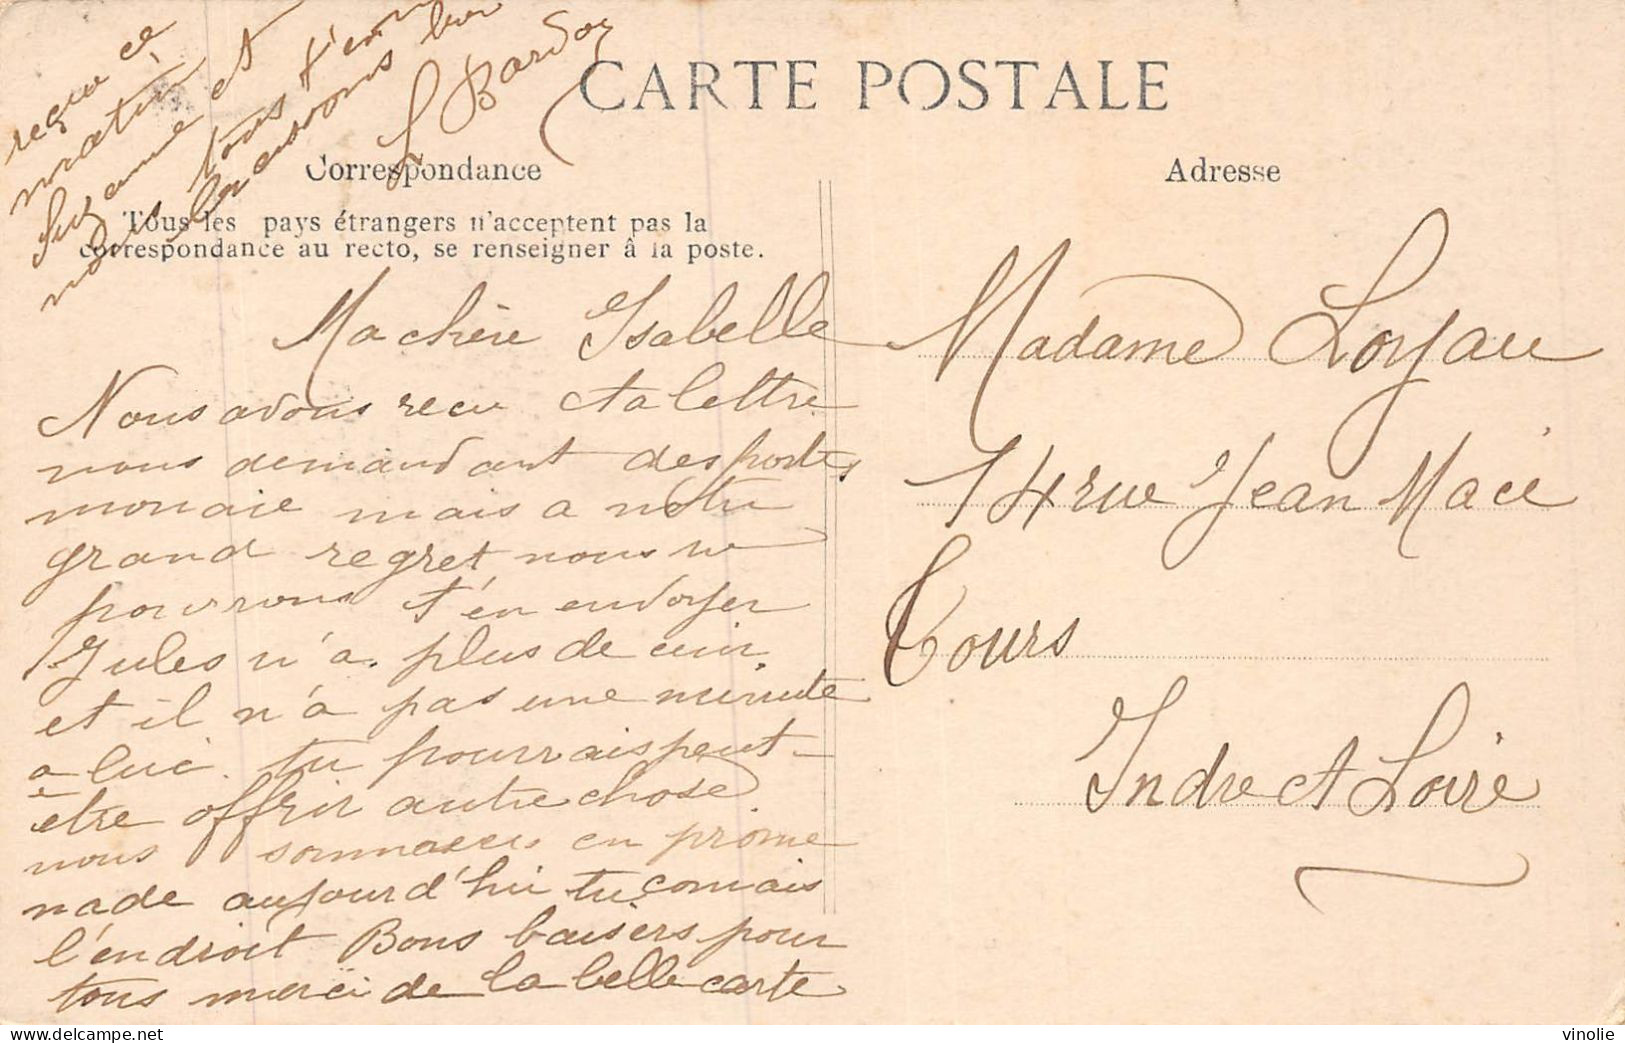 CARTE POSTALE
Correspondance
Tous les pays étrangers n'acceptent pas la
correspondance au recto, se renseigner à la poste.
Ma chère Isabelle
Nous avons recu ta lettre
nous demandant des portes
monaie mais a notre
grand regret nous ne
pourrons t'én envoyer
Jules n'a plus de cuir
et il n'a pas une minute
a lui. tu pourrais peut-
être offrir autre chose
nous sommes en prome
nade aujourd'hui tu connais
l'endroit Bons baisers pour
tous merci de la belle carte
reçue ce
matin
Suzanne et
nous tous t'en
bons
L Bardoy
Adresse
Madame Loyau
14 rue Jean Macé
Tours
Indre et Loire
vinolie